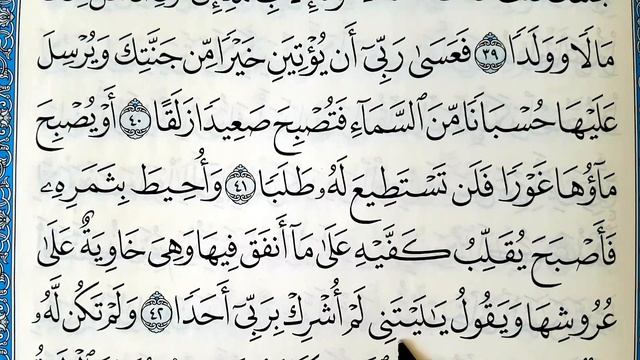 مَالًا وَوَلَدًا ٣٩ فَعَسَىٰ رَبِّىٓ أَن يُؤْتِيَنِ خَيْرًا مِّن جَنَّتِكَ وَيُرْسِلَ
عَلَيْهَا حُسْبَانًا مِّنَ ٱلسَّمَآءِ فَتُصْبِحَ صَعِيدًا زَلَقًا ٤٠ أَوْ يُصْبِحَ
مَآؤُهَا غَوْرًا فَلَن تَسْتَطِيعَ لَهُۥ طَلَبًا ٤١ وَأُحِيطَ بِثَمَرِهِۦ
فَأَصْبَحَ يُقَلِّبُ كَفَّيْهِ عَلَىٰ مَآ أَنفَقَ فِيهَا وَهِىَ خَاوِيَةٌ عَلَىٰ
عُرُوشِهَا وَيَقُولُ يَٰلَيْتَنِى لَمْ أُشْرِكْ بِرَبِّىٓ أَحَدًا ٤٢ وَلَمْ تَكُن لَّهُۥ